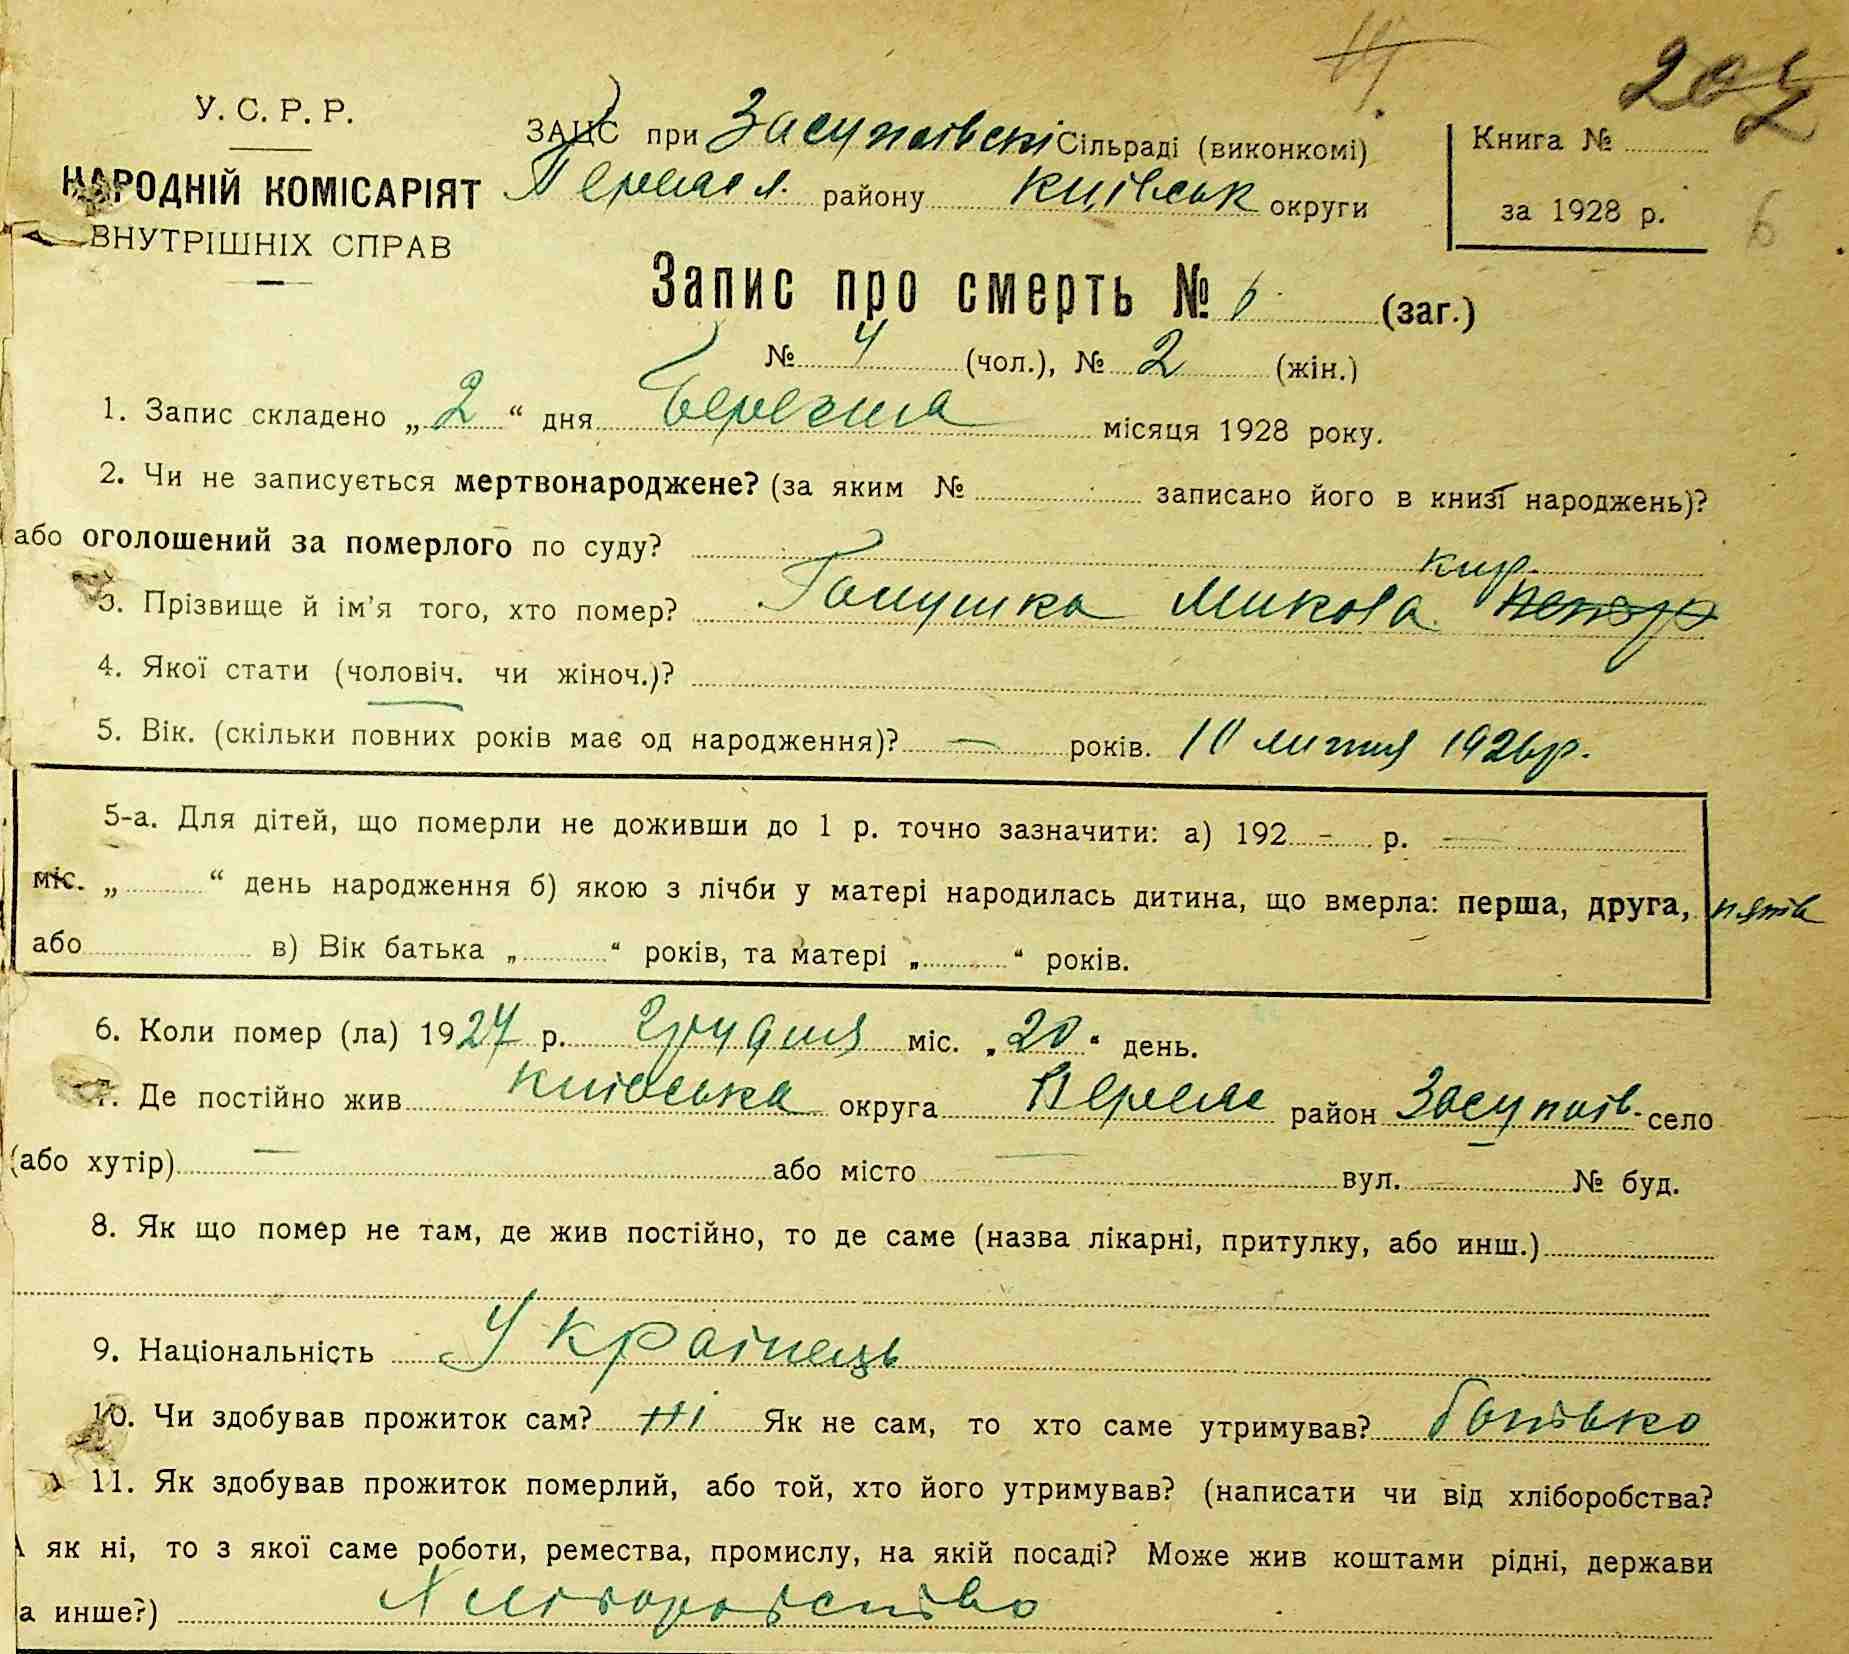 14
202
У. С. Р. Р.
НАРОДНІЙ КОМІСАРІЯТ
ВНУТРІШНІХ СПРАВ
ЗАЦС при Засупоївскі Сільраді (виконкомі)
Переясл. району Київськ округи
Книга №
за 1928 р.
6
Запис про смерть № 6 (заг.)
№ 4 (чол.), № 2 (жін.)
1. Запис складено „ 2 “ дня Березня місяця 1928 року.
2. Чи не записується мертвонароджене? (за яким № записано його в книзі народжень)?
або оголошений за померлого по суду?
3. Прізвище й ім’я того, хто помер? Галушка Микола Кир.
4. Якої стати (чоловіч. чи жіноч.)?
5. Вік. (скільки повних років має од народження)? — років. 10 липня 1926 р.
5-а. Для дітей, що померли не доживши до 1 р. точно зазначити: а) 192 - р. —
міс. „ “ день народження б) якою з лічби у матері народилась дитина, що вмерла: перша, друга, пята
або в) Вік батька „ “ років, та матері „ “ років.
6. Коли помер (ла) 1927 р. Грудня міс. „ 20 “ день.
7. Де постійно жив Київська округа Переяс район Засупоїв. село
(або хутір) — або місто — вул. № буд.
8. Як що помер не там, де жив постійно, то де саме (назва лікарні, притулку, або инш.)
9. Національність Украінець
10. Чи здобував прожиток сам? Ні Як не сам, то хто саме утримував? батько
11. Як здобував прожиток померлий, або той, хто його утримував? (написати чи від хліборобства?
А як ні, то з якої саме роботи, ремества, промислу, на якій посаді? Може жив коштами рідні, держави
а инше?) Хліборобство